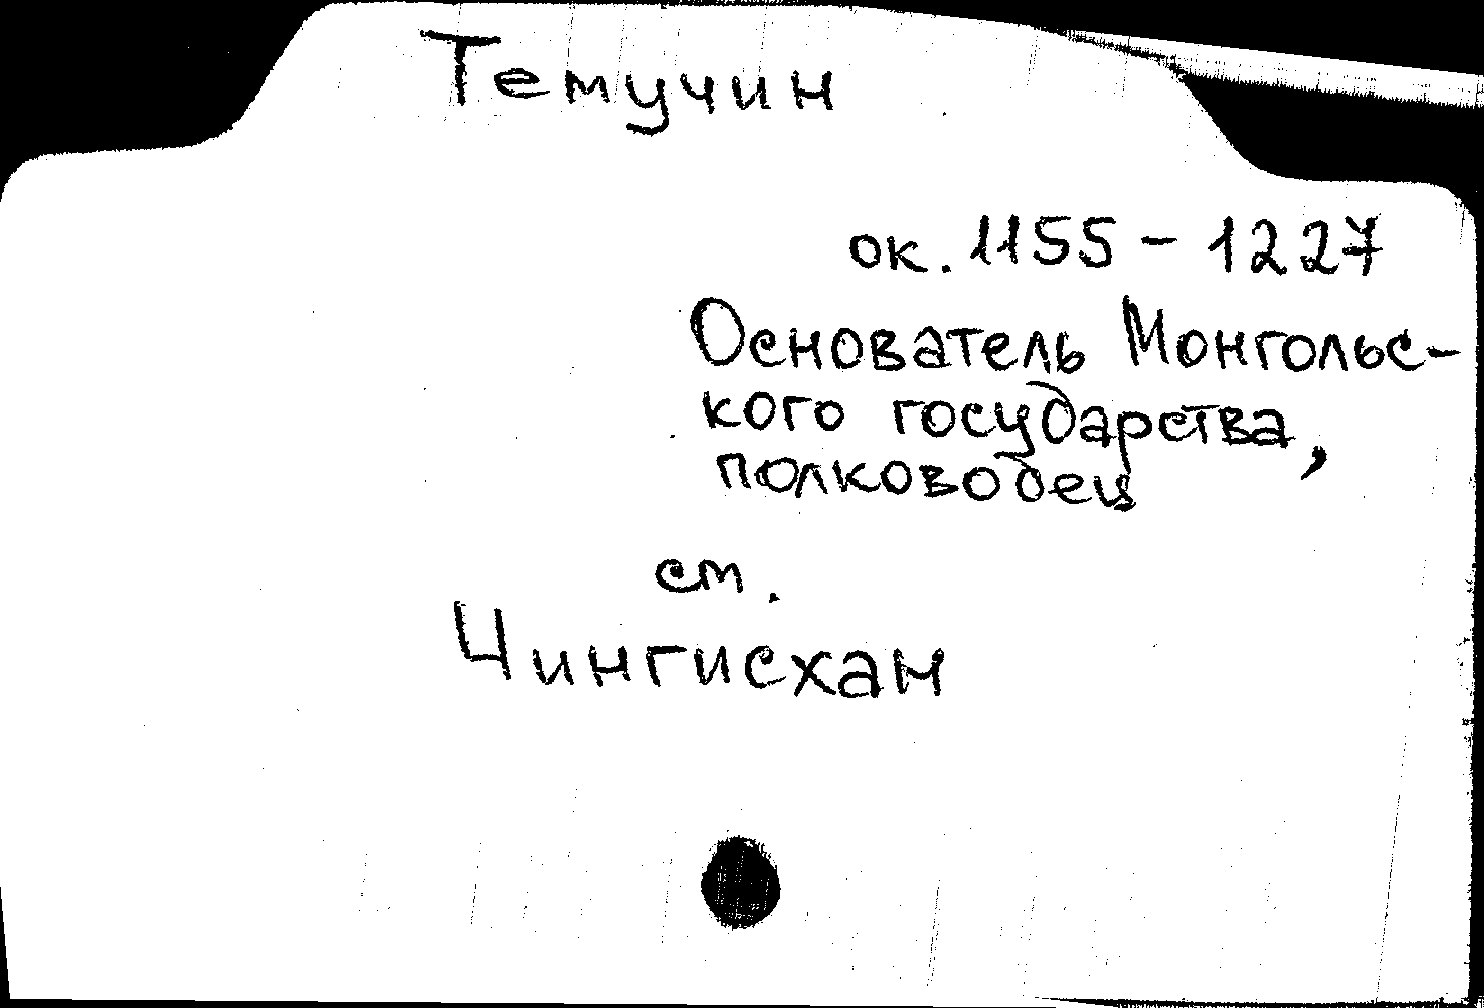 Темучин
ок. 1155 - 1227
Основатель Монгольс-
кого государства,
полководец
см.
Чингисхан